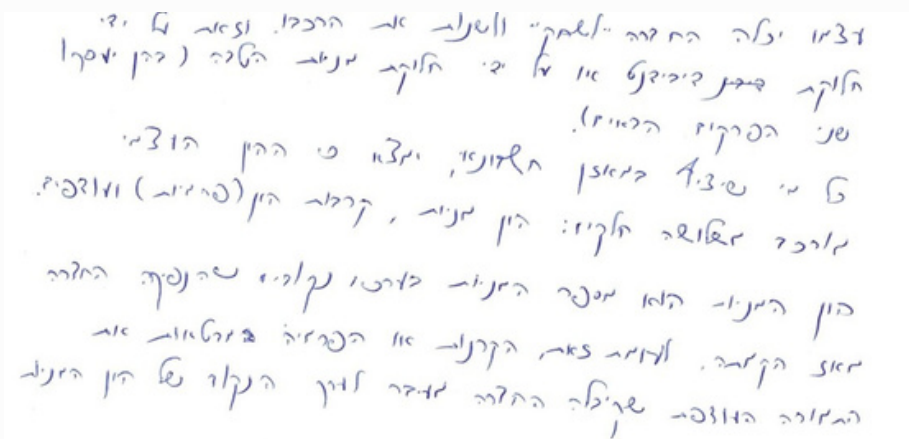 עצמו יכלה החברה "לשחק" ולשנות את הרכבו. וזאת על ידי
חלוקת דיבידנט או על ידי חלוקת מניות הטבה (בהן יעסקו
שני הפרקים הבאים).
כל מי שיציץ במאזן חשבונאי, ימצא כי ההון העצמי
מורכב משלושה חלקים: הון מניות, קרנות הון (פרמיות) ועודפים.
הון המניות הוא מספר המניות בערכו נקוב שהנפיקה החברה
מאז הקמתה. לעומת זאת, הקרנות או הפרמיה מבטאות את
התמורה העודפת שקיבלה החברה מעבר לערך הנקוב של הון המניות